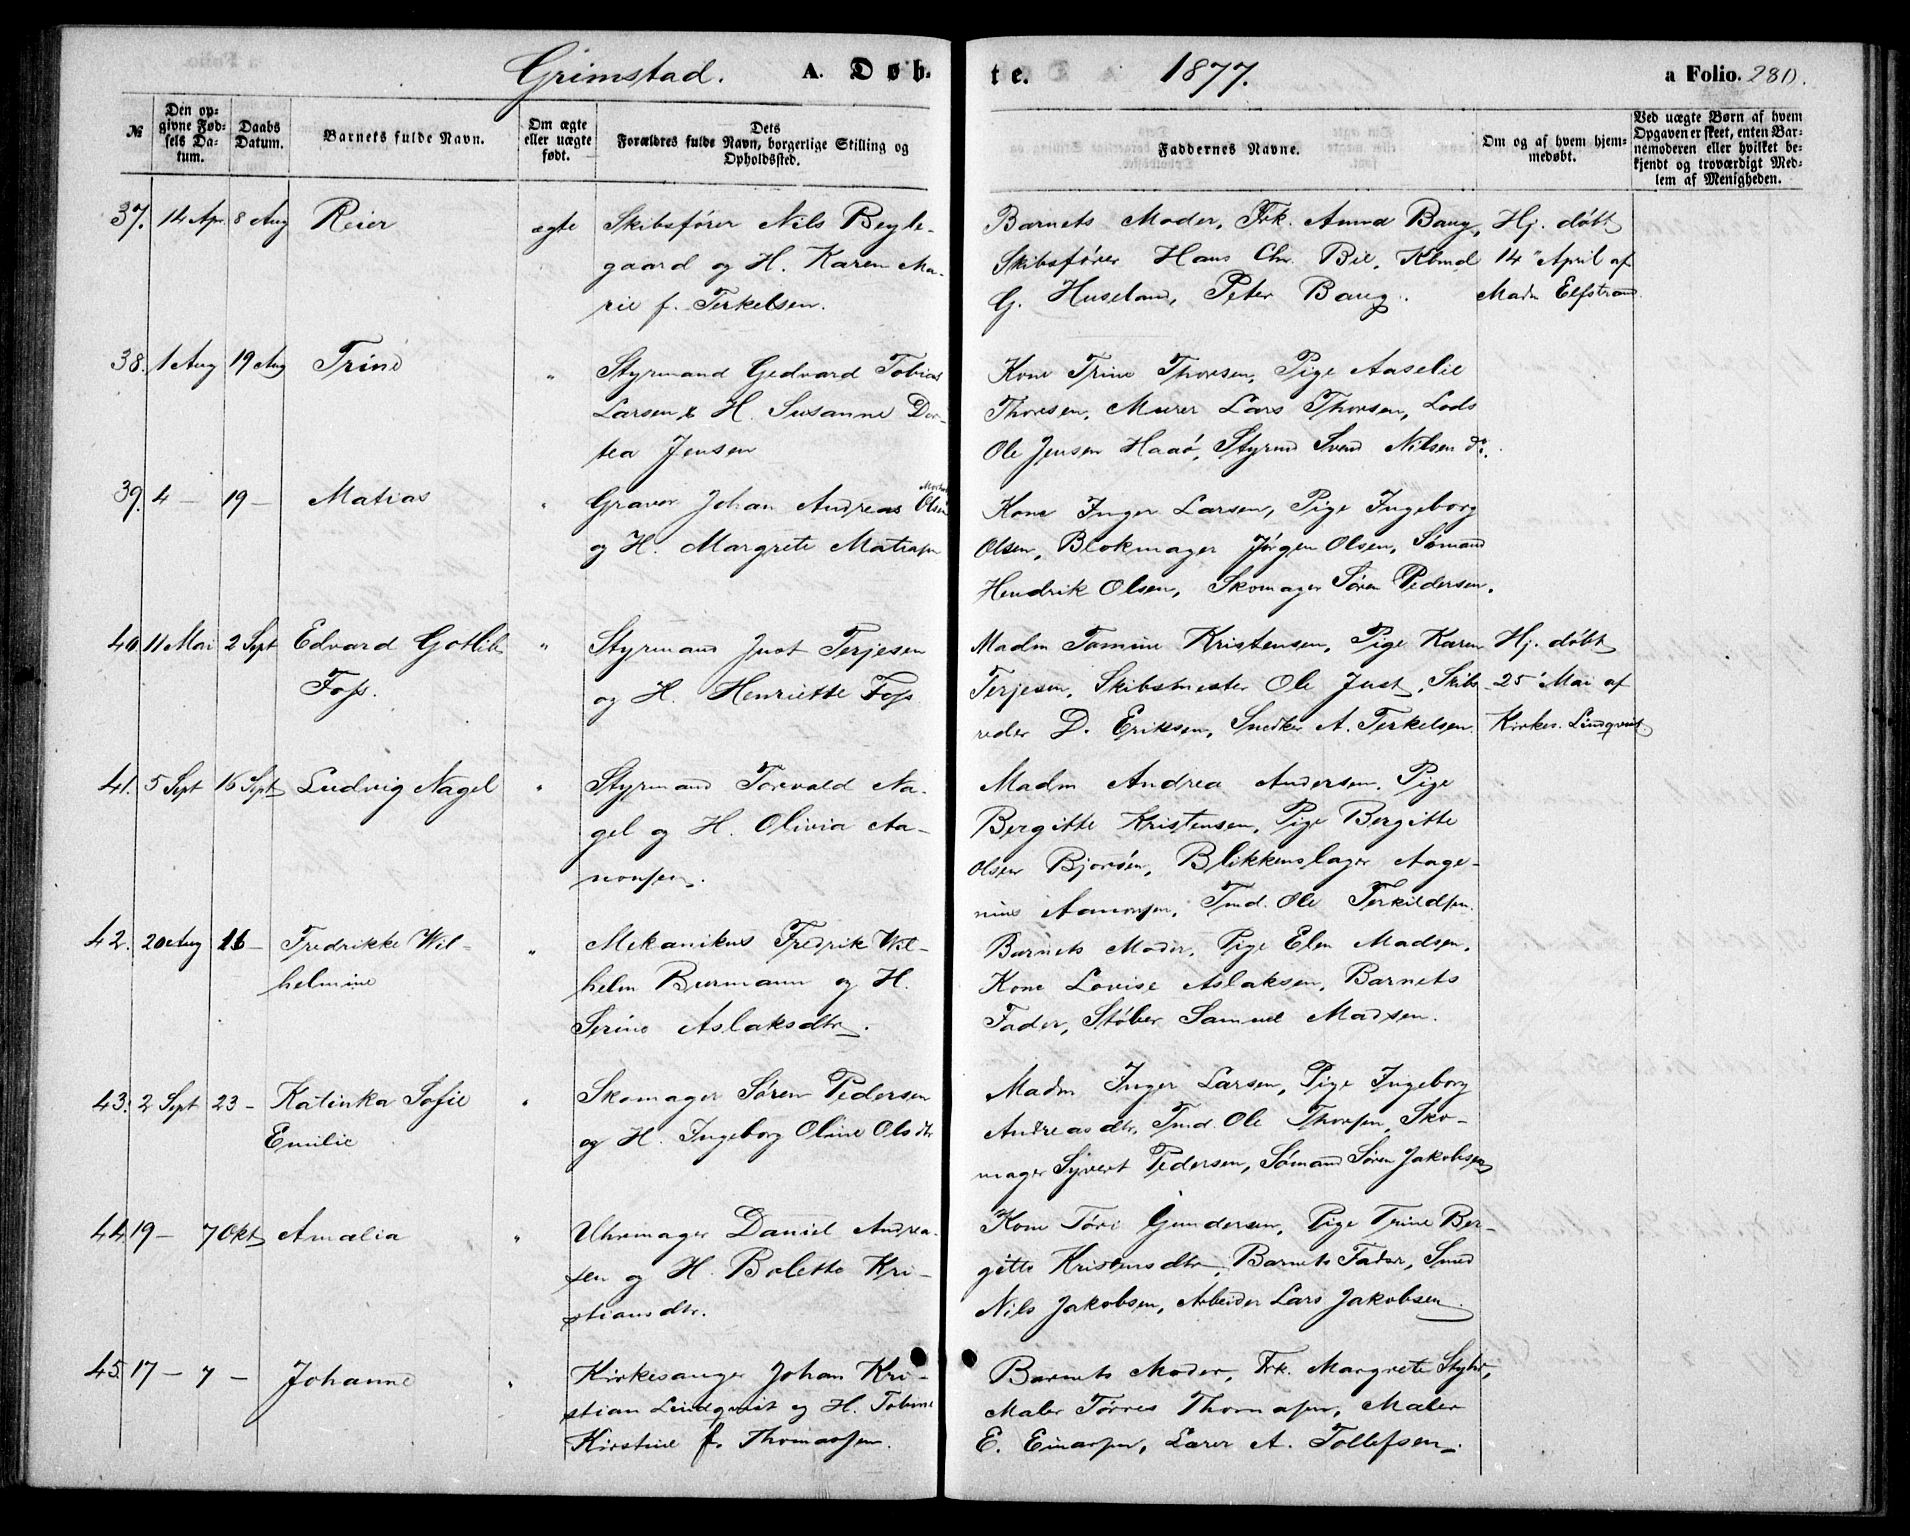 Grimstad. A. Døb-
te. 1877. a Folio. 280.
№ Den opgivne Fødsels Datum. Daabs Datum. Barnets fulde Navn. Om ægte eller uægte født. Dets Forældres fulde Navn, borgerlige Stilling og Opholdssted. Faddernes Navne. Om og af hvem hjemmedøbt. Ved uægte Børn af hvem Opgaven er skeet, enten Barnemoderen eller hvilket bekjendt og troværdigt Medlem af Menigheden.
37. 14 Apr. 8 Aug Reier ægte Skibsfører Nils Begle-
gaard og H. Karen Ma-
rie f. Terkelsen.
Barnets Moder, Frk. Anna Baug,
Skibsfører Hans Chr. Bie, Kbmd
G. Huseland, Peter Baug.
Hj. døbt
14 April af
Madm Elfstrand.
38. 1 Aug 19 Aug Trine " Styrmand Gedvard Tobias
Larsen & H. Susanne Dor-
tea Jensen
Kone Trine Thorsen, Pige Aaselie
Thorsen, Murer Lars Thorsen, Lods
Ole Jensen Haaø, Styrmd Svend Nilsen do.
39. 4 – 19 – Matias " Graver Johan Andreas Olsen
og H. Margrete Matiasen
Kone Inger Larsen, Pige Ingeborg
Olsen, Blokmager Jørgen Olsen, Sømand
Hendrik Olsen, Skomager Søren Pedersen.
40. 11 Mai 2 Sept Edvard Gotlib
Foss.
" Styrmand Just Terjesen
og H. Henriette Foss
Madm Tomine Kristensen, Pige Karen
Terjesen, Skibsmester Ole Just, Skibs-
reder D. Eriksen, Snedker A. Terkelsen.
Hj. døbt
25 Mai af
Kirkes. Lindqvist.
41. 5 Sept 16 Sept Ludvig Nagel " Styrmand Torvald Na-
gel og H. Olivia Aa-
nonsen.
Madm Andrea Andersen, Pige
Bergitte Kristensen, Pige Bergitte
Olsen Bjorøen, Blikkenslager Aage-
nius Aanonsen, Tmd. Ole Terkildsen.
42. 20 Aug 16 – Fredrikke Wil-
helmine
" Mekanikus Fredrik Wil-
helm Burmann og H.
Serine Aslaksdtr.
Barnets Moder, Pige Elen Madsen,
Kone Lovise Aslaksen, Barnets
Fader, Støber Samuel Madsen.
43. 2 Sept 23 – Katinka Sofie
Emilie
" Skomager Søren Pedersen
og H. Ingeborg Oline Olsdtr
Madm Inger Larsen, Pige Ingeborg
Andreasdtr, Tmd. Ole Thorsen, Sko-
mager Syvert Pedersen, Sømand Søren Jakobsen
44. 19 – 7 Okt Amalia " Uhrmager Daniel Andrea-
sen og H. Bolette Kri-
stiansdtr.
Kone Tøri Gundersen, Pige Trine Ber-
gitte Kristensdtr, Barnets Fader, Smed
Nils Jakobsen, Arbeider Lars Jakobsen.
45. 17 – 7 – Johanne " Kirkesanger Johan Kri-
stian Lindqvist og H. Tobine
Kirstine f. Thomassen.
Barnets Moder, Frk. Margrete
Maler Tørres Thomasen, Maler
E. Einarsen, Lærer A. Tollefsen.